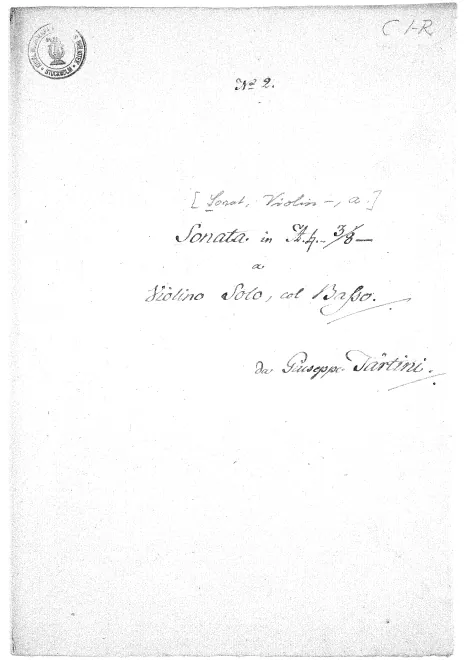 C1-R
STOCKHOLM
No 2.
[Sonat, Violin-, a.]
Sonata. in A.♮. 3/8 —
a
Violino Solo, col Basso.
da Giuseppe Tartini.